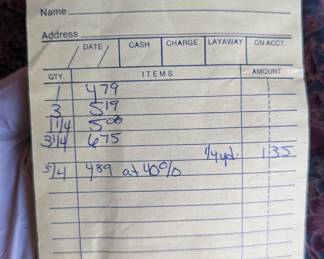 Name
Address
DATE CASH CHARGE LAYAWAY ON ACCT.
QTY. ITEMS AMOUNT
1 4 79
3 5 19
1 1/4 5 00
3 1/4 6 75
1/4 yd. 1 35
5/4 4 89 at 40%